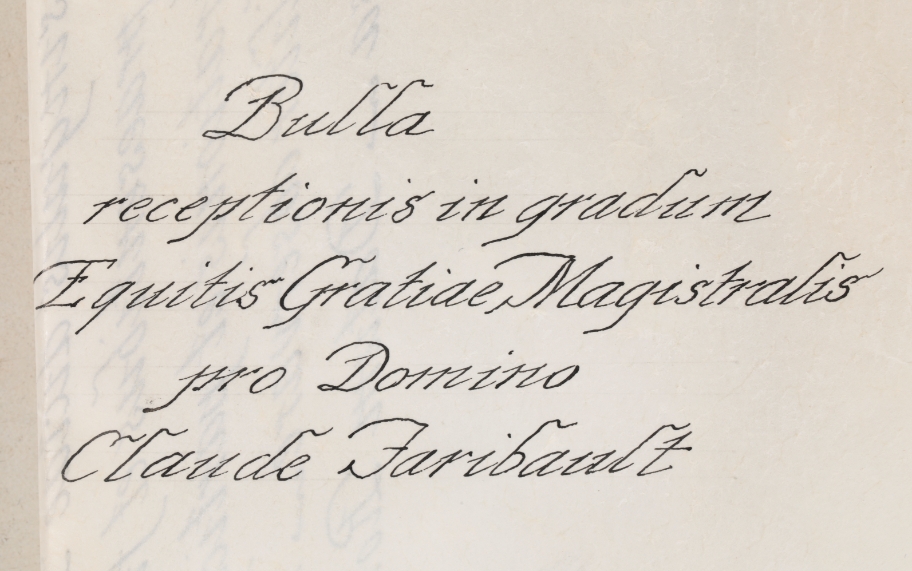 Bulla
receptionis in gradum
Equitis Gratiae Magistralis
pro Domino
Claude Faribault